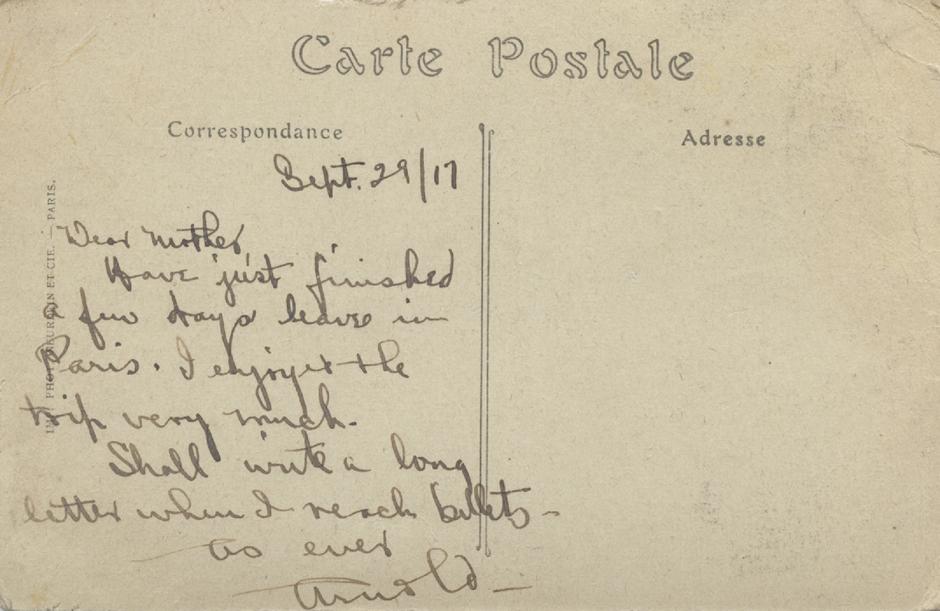 Carte Postale
Correspondance
Adresse
Sept. 29/17
Dear Mother
Have just finished
a few days leave in
Paris. I enjoyed the
trip very much.
Shall write a long
letter when I reach billets -
As ever
Arnold -
IMP. PHOT. NEURDEIN ET CIE. — PARIS.